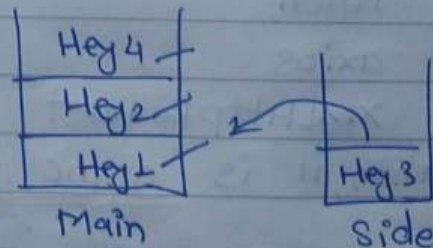 Hey 4
Hey 2
Hey 1
Main
Hey 3
Side